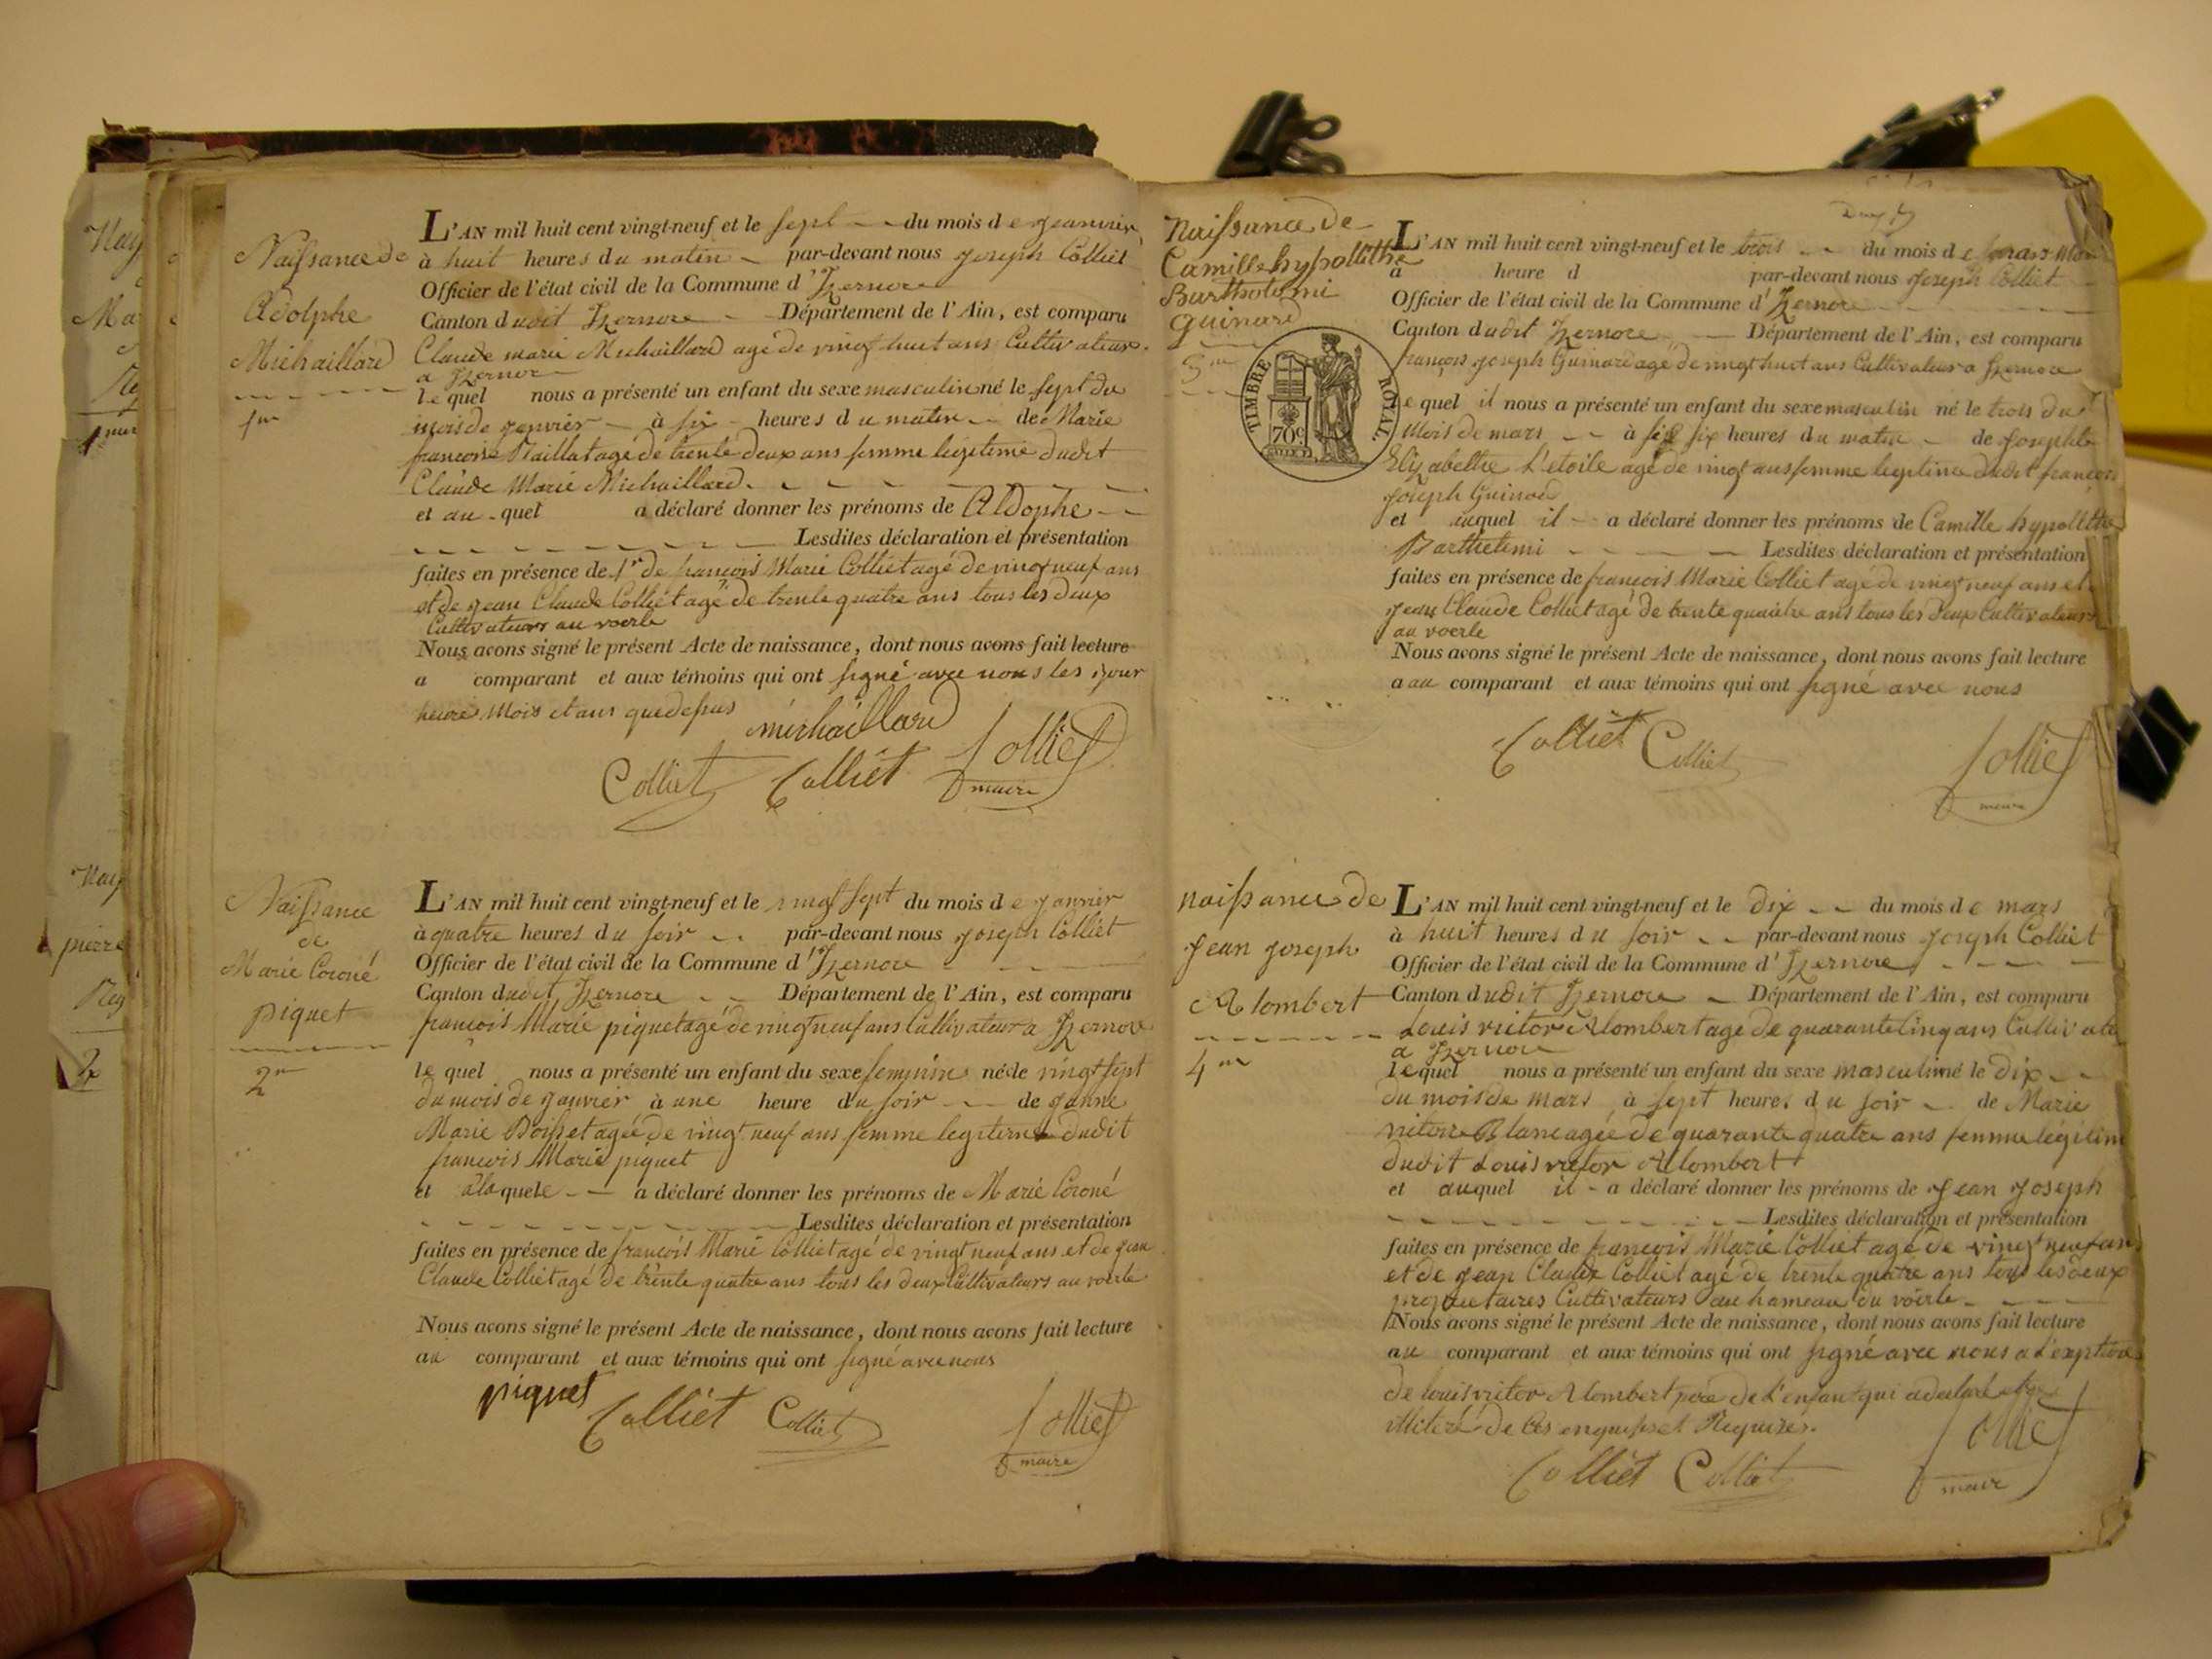 Naissance de
Adolphe
Michaillard
1er
L'AN mil huit cent vingt-neuf et le sept du mois de Jeanvier
à huit heures du matin par-devant nous Joseph Colliet
Officier de l'état civil de la Commune d'Izernore
Canton dudit Izernore Département de l'Ain, est comparu
Claude marie Michaillard agé de vingt huit ans Cultivateur
a Izernore
lequel nous a présenté un enfant du sexe masculin né le sept du
mois de Janvier à six heures du matin de Marie
françoise Maillat agé de trente deux ans femme legitime dudit
Claude Marie Michaillard
et au quel a déclaré donner les prénoms de Aldophe
Lesdites déclaration et présentation
faites en présence de 1er de françois Marie Colliet agé de vingt neuf ans
et de Jean Claude Colliet agé de trente quatre ans tous les deux
Cultivateurs au voerle
Nous avons signé le présent Acte de naissance, dont nous avons fait lecture
a comparant et aux témoins qui ont signé avec nous les jour
heure mois et ans que desus
michaillard
Colliet Colliet Colliet
maire
Naissance
de
Marie Coroné
piquet
2e
L'AN mil huit cent vingt-neuf et le vingt sept du mois de Janvier
à quatre heures du soir par-devant nous Joseph Colliet
Officier de l'état civil de la Commune d'Izernore
Canton dudit Izernore Département de l'Ain, est comparu
françois Marie piquet agé de vingt neuf ans Cultivateur a Izernore
lequel nous a présenté un enfant du sexe feminin née le vingt sept
du mois de Janvier à une heure du soir de Janne
Marie Boisset agée de vingt neuf ans femme legitime dudit
françois Marie piquet
et à la quele a déclaré donner les prénoms de Marie Coroné
Lesdites déclaration et présentation
faites en présence de françois Marie Colliet agé de vingt neuf ans et de Jean
Claude Colliet agé de trente quatre ans tous les deux Cultivateurs au voerle
Nous avons signé le présent Acte de naissance, dont nous avons fait lecture
au comparant et aux témoins qui ont signé avec nous
piquet
Colliet Colliet Colliet
maire
Naissance de
Camille hypollithe
Bartholemi
Guinard
3me
TIMBRE ROYAL
70c
L'AN mil huit cent vingt-neuf et le trois du mois de mars
à heure d par-devant nous Joseph Colliet
Officier de l'état civil de la Commune d'Izernore
Canton dudit Izernore Département de l'Ain, est comparu
françois Joseph Guinard agé de vingt huit ans Cultivateur a Izernore
equel il nous a présenté un enfant du sexe masculin né le trois du
mois de mars à six heures du matin de Josephte
Elizabethe L'etoile agé de vingt ans femme legitime dudit françois
Joseph Guinard
et auquel il a déclaré donner les prénoms de Camille hypollithe
Barthelemi Lesdites déclaration et présentation
faites en présence de françois Marie Colliet agé de vingt neuf ans et
Jean Claude Colliet agé de trente quatre ans tous les deux Cultivateurs
au voerle
Nous avons signé le présent Acte de naissance, dont nous avons fait lecture
a au comparant et aux témoins qui ont signé avec nous
Colliet Colliet Colliet
maire
naissance de
Jean Joseph
Alombert
4me
L'AN mil huit cent vingt-neuf et le dix du mois de mars
à huit heures du soir par-devant nous Joseph Colliet
Officier de l'état civil de la Commune d'Izernore
Canton dudit Izernore Département de l'Ain, est comparu
Louis victor Alombert agé de quarante cinq ans Cultivate
a Izernore
lequel nous a présenté un enfant du sexe masculin né le dix
du mois de mars à sept heures du soir de Marie
Blanc agée de quarante quatre ans femme légitim
dudit Louis victor Alombert
et auquel il a déclaré donner les prénoms de Jean Joseph
Lesdites déclaration et présentation
faites en présence de françois Marie Colliet agé de vingt neuf ans
et de Jean Claude Colliet agé de trente quatre ans tous les deux
propriétaires Cultivateurs au hameau du voerle
Nous avons signé le présent Acte de naissance, dont nous avons fait lecture
au comparant et aux témoins qui ont signé avec nous a L'exption
de louis victor Alombert père de L'enfant qui a declaré
illitéré de Ces enquis et Requires.
Colliet Colliet Colliet
maire